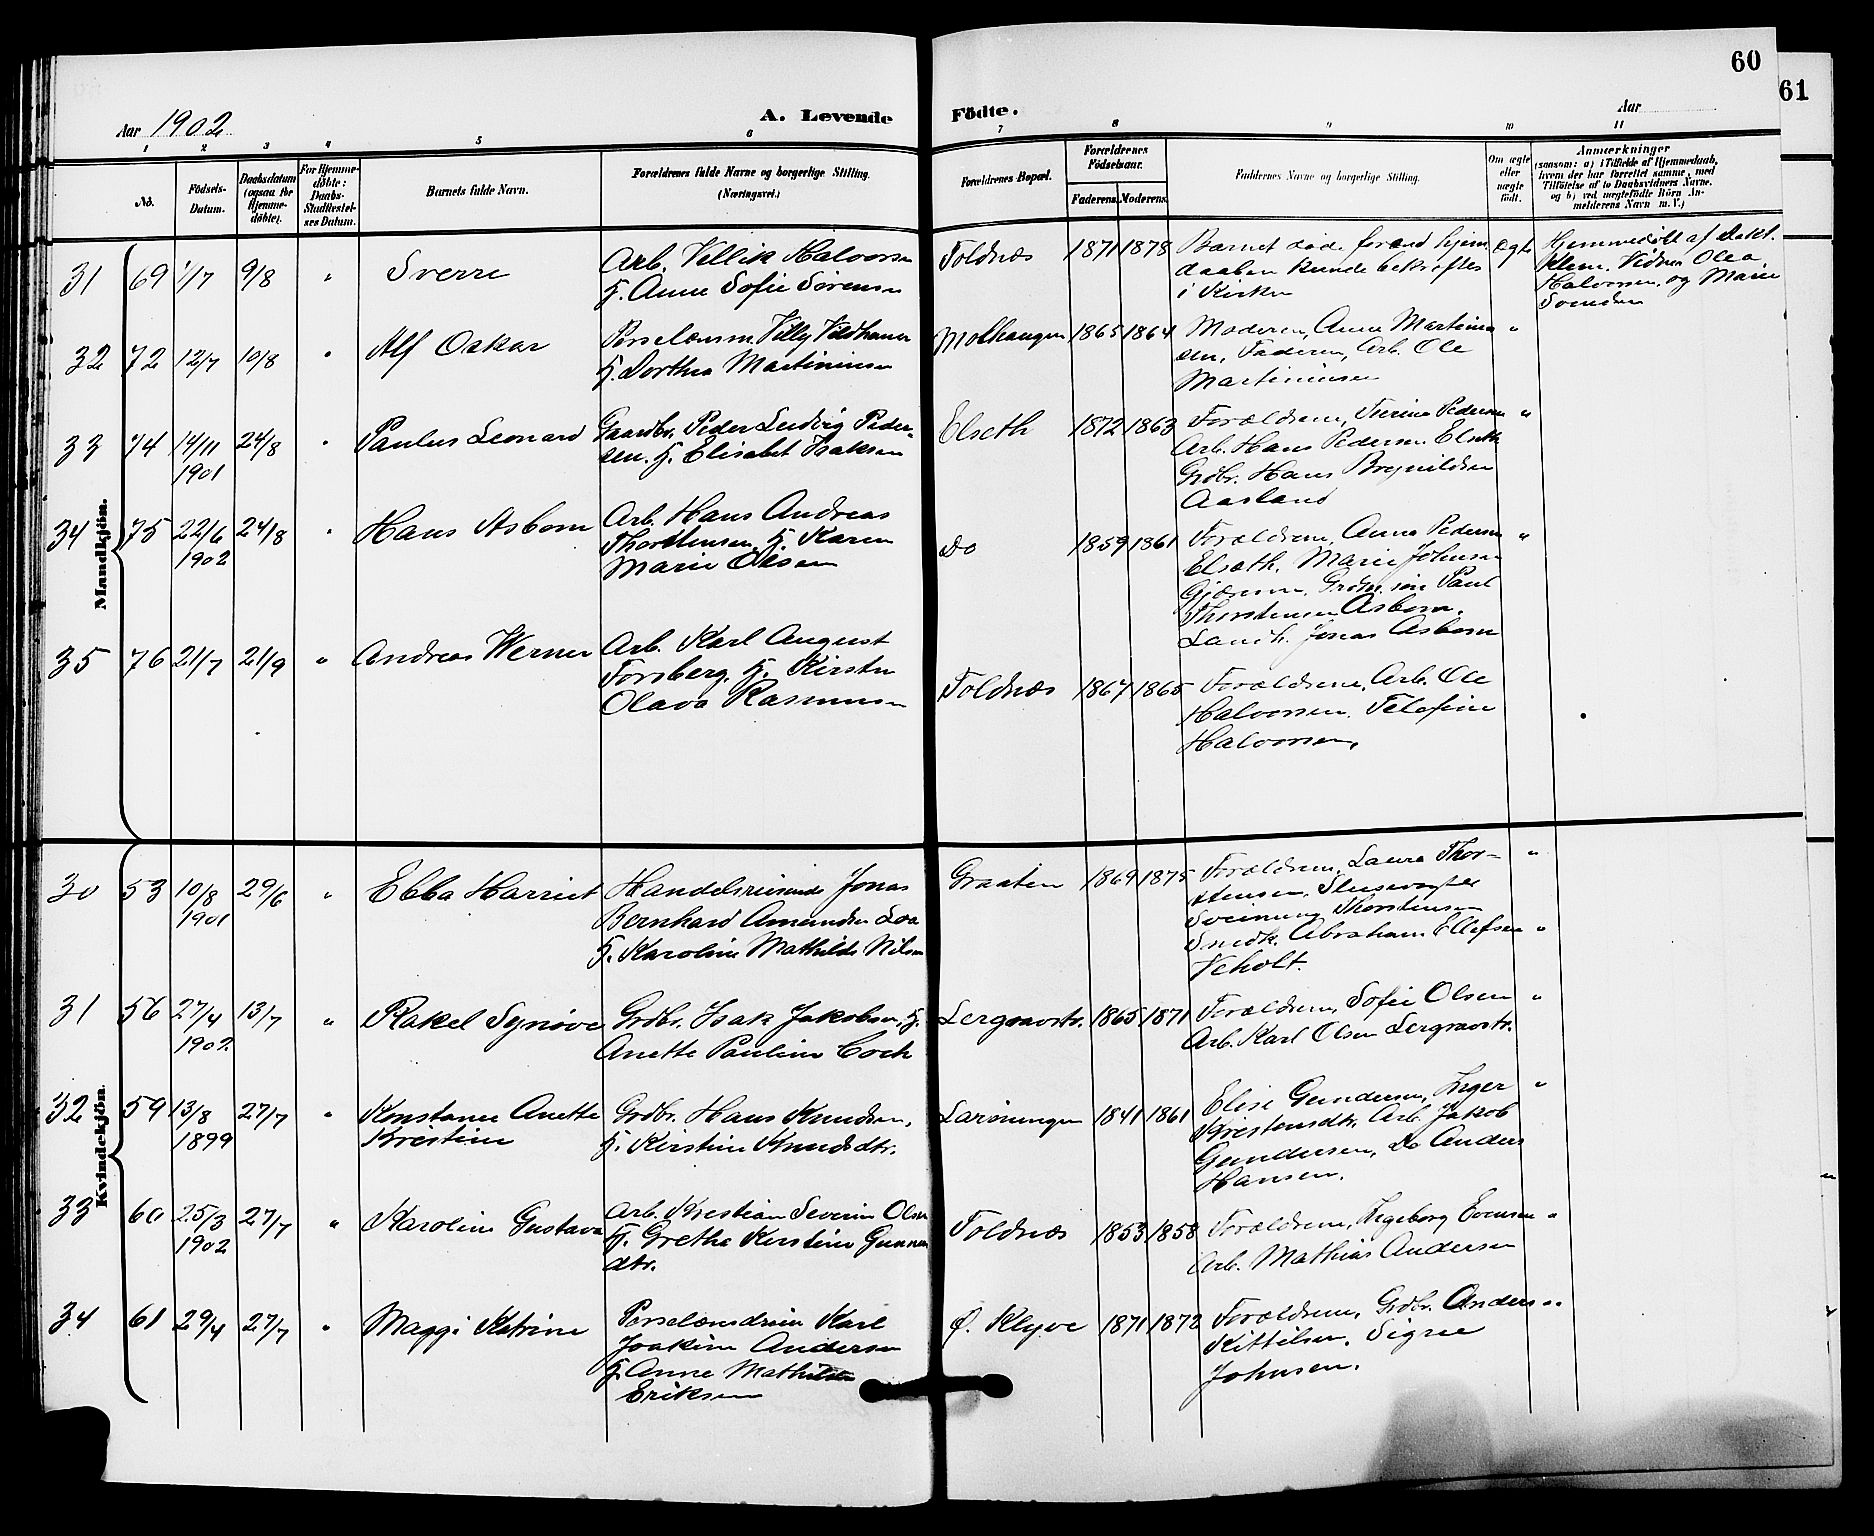 60
61
Aar 1902.
A. Levende Födte.
Aar
1 2 3 4 5 6 7 8 9 10 11
No.
Födsels-Datum.
Daabsdatum (ogsaa for Hjemme-döbte).
For Hjemme-döbte: Daabs-Stadfæstel-ses Datum.
Barnets fulde Navn.
Forældrenes fulde Navne og borgerlige Stilling.
(Næringsvei.)
Forældrenes Bopæl.
Forældrenes Födselsaar.
Faderens. Moderens.
Faddernes Navne og borgerlige Stilling.
Om ægte eller uægte födt.
Anmærkninger
(saasom: a) i Tilfælde af Hjemmedaab,
hvem der har forrettet samme, med
Tilföielse af to Daabsvidners Navne.
og b) ved uægtefödte Börn An-
melderens Navn m. V.)
Mandkjön.
31 69 1/7 9/8 " Sverre
Arb. Halvorsen
H. Anne Sofie Sörensen
Foldnæs 1871 1878
Barnet döde förend hjem.
daaben kunde bekræftes
i Kirken
ægte
Hjemmedöbt af
Klem. Vidner Olea
Halvorsen, og Marie
Svendsen
32 72 12/7 10/8 " Alf Oskar
Porselænsm. Villy
H. Dorthea Martininsen
Molhaugen 1865 1864
Moderen, Anne Martinin
sen, Faderen, Arb. Ole
Martininsen
"
33 74 14/11 1901 24/8 " Paulus Leonard
Gaardbr. Peder Ludvig Peder-
sen. H. Elisabet Isaksen
Elseth 1872 1863
Forældrene, Pedersen
Arb. Hans Pedersen Elseth
Grdbr. Hans Brynildsen
Aasland
"
34 75 22/6 1902 24/8 " Hans Asborn
Arb. Hans Andreas
Thorstensen H. Karen
Marie Olsen
Do 1859 1861
Forældrene, Anne Pedersen
Elseth. Marie Johnsen
Grdm. sön Paul
Thorstensen Asborn.
Landh. Jonas Asborn
"
35 76 21/7 21/9 " Andreas Werner
Arb. Karl August
Forsberg, H. Kirsten
Olava Rasmussen
Foldnæs 1867 1865
Forældrene, Arb. Ole
Halvorsen. Telefine
Halvorsen.
Kvindekjön.
30 53 10/8 1901 29/6 " Ebba Harriet
Handelsreisende Jonas
Bernhard Amundsen Loa
H. Karoline Mathilde Nilsen
Graaten 1869 1875
Forældrene, Laura Thor-
stensen, Slusevogter
Sveinung Thorstensen
Snedk. Abraham Ellefsen
Veholt.
" "
31 56 27/4 1902 13/7 " Rakel Synöve
Grdbr. Isak Jakobsen, H.
Anette Pauline Coch
Lergravstr. 1865 1871
Forældrene, Sofie Olsen
Arb. Karl Olsen Lergravstr.
"
32 59 13/8 1899 27/7 " Konstance Anette
Kristine
Grdbr. Hans Knudsen,
H. Kerstine Knudsdtr.
Larönningen 1841 1861
Elise Gundersen, Inger
Kristensdtr. Arb. Jakob
Gundersen, Do Anders
Hansen.
"
33 60 25/3 1902 27/7 " Karoline Gustava
Arb. Kristian Severin Olsen
H. Grethe Kerstine Gunners
dtr.
Foldnæs 1853 1858
Forældrene, Ingeborg Evensen
Arb. Mathias Andersen
"
34 61 29/4 27/7 " Maggi Katrine
Porselænsdreier Karl
Joakim Andersen
H. Anne Mathilde
Eriksen
Ø. Klyve 1871 1872
Forældrene, Grdbr. Anders
Kittilsen, Signe
Johnsen.
"